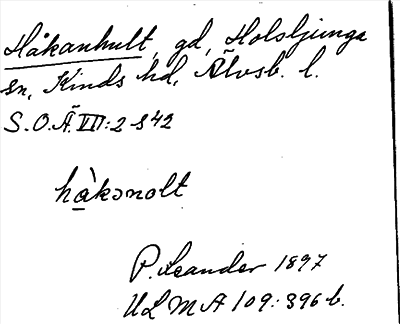 Håkanhult, gd, Holsljunga
sn, Kinds hd, Älvsb. l.
S.O.Ä. VII:2 s 42
hàkənolt
P. Leander 1897
ULMA 109:396 b.